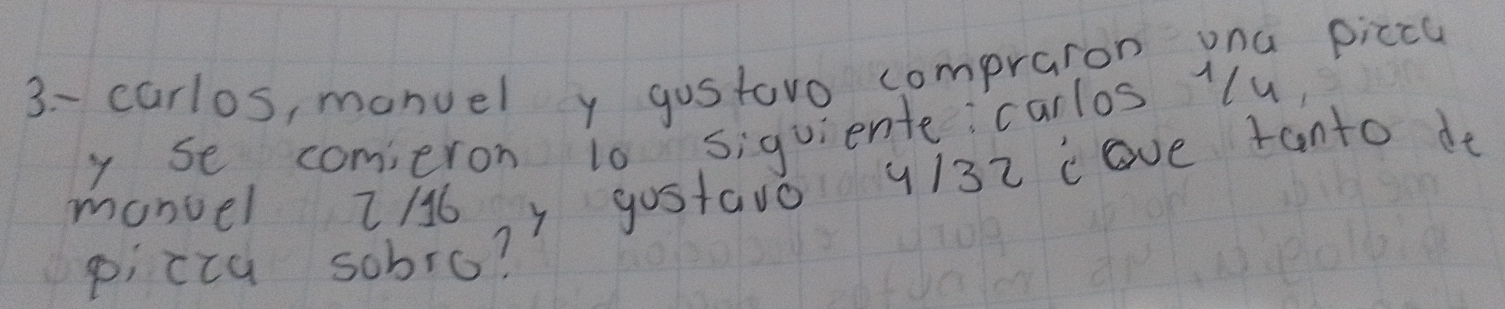 3.- carlos, manuel y gustavo compraron una pizza
y se comieron lo siguiente: carlos 1/4,
manuel 2/16, y gustavo 4/32 ¿Que tanto de
pizza sobro?